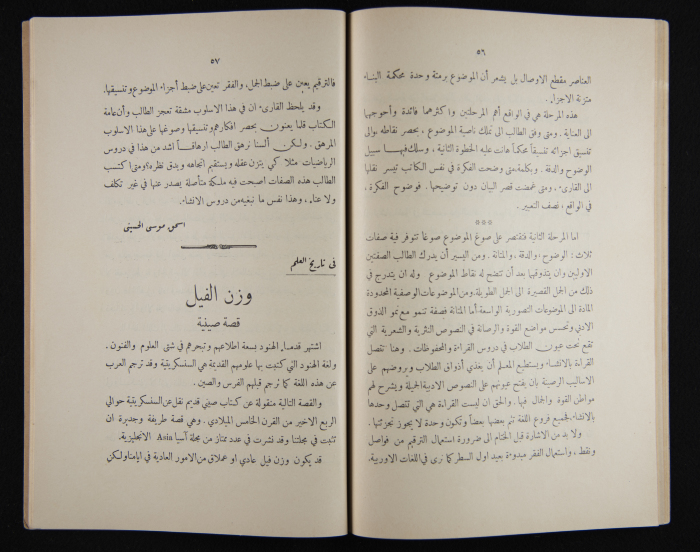 ٥٦
العناصر مقطع الاوصال بل يشعر أن الموضوع برمته وحدة محكمة البناء
متزنة الاجزاء.
هذه المرحلة هي في الواقع أهم المرحلتين واكثرهما فائدة وأحوجهما
الى العناية. ومتى وفق الطالب الى تملك ناصية الموضوع، بحصر نقاطه والى
تنسيق اجزائه تنسيقاً محكماً هانت عليه الخطوة الثانية، وسلك فيها سبيل
الوضوح والدقة. وبكلمة، متى وضحت الفكرة في نفس الكاتب تيسر نقلها
الى القارىء، ومتى غمضت قصر البيان دون توضيحها. فوضوح الفكرة،
في الواقع، نصف التعبير.
***
اما المرحلة الثانية فتقتصر على صوغ الموضوع صوغاً تتوفر فيه صفات
ثلاث: الوضوح، والدقة، والمتانة. ومن اليسير أن يدرك الطالب الصفتين
الاوليين وان يتذوقهما بعد أن تتضح له نقاط الموضوع وله ان يتدرج في
ذلك من الجمل القصيرة الى الجمل الطويلة. ومن الموضوعات الوصفية المحدودة
المادة الى الموضوعات التصورية الواسعة. أما المتانة فصفة تنمو مع نمو الذوق
الادبي وتحسس مواضع القوة والرصانة في النصوص النثرية والشعرية التي
تقع تحت عيون الطلاب في دروس القراءة والمحفوظات. وهنا تتصل
القراءة بالانشاء. ويستطيع المعلم أن يغذي أذواق الطلاب ويروضهم على
الاساليب الرصينة بان يفتح عيونهم على النصوص الادبية الجميلة ويشرح لهم
مواطن القوة والجمال فيها. والحق ان ليست القراءة هي التي تتصل وحدها
بالانشاء. فجميع فروع اللغة تتم بعضها بعضاً وتكون وحدة لا يجوز تجزئتها.
ولا بد من الاشارة قبل الختام الى ضرورة استعمال الترقيم من فواصل
ونقط، واستعمال الفقر مبدوءة بعيد اول السطر كما نرى في اللغات الاوربية.
٥٧
فالترقيم يعين على ضبط الجمل، والفقر تعين على ضبط أجزاء الموضوع وتنسيقها.
وقد يلحظ القارىء ان في هذا الاسلوب مشقة تعجز الطالب وأن عامة
الكتاب قلما يعنون بحصر افكارهم وتنسيقها وصوغها على هذا الاسلوب
المرهق. ولكن ألسنا نرهق الطالب ارهاقاً اشد من هذا في دروس
الرياضيات مثلا كي يتزن عقله ويستقيم اتجاهه ويدق نظره؟ ومتى اكتسب
الطالب هذه الصفات اصبحت فيه ملكة متأصلة يصدر عنها في غير تكلف
ولا عناء، وهذا نفس ما نبغيه من دروس الانشاء.
اسحق موسى الحسيني
في تاريخ العلم
وزن الفيل
قصة صينية
اشتهر قدماء الهنود بسعة اطلاعهم وتبحرهم في شتى العلوم والفنون.
ولغة الهنود التي كتبت بها علومهم القديمة هي السنسكريتية وقد ترجم العرب
عن هذه اللغة كما ترجم قبلهم الفرس والصين.
والقصة التالية منقولة عن كتاب صيني قديم نقل عن السنسكريتية حوالي
الربع الاخير من القرن الخامس الميلادي. وهي قصة طريفة وجديرة ان
تثبت في مجلتنا وقد نشرت في عدد ممتاز من مجلة آسيا Asia الانجليزية.
قد يكون وزن فيل عادي او عملاق من الامور العادية في ايامنا ولكن